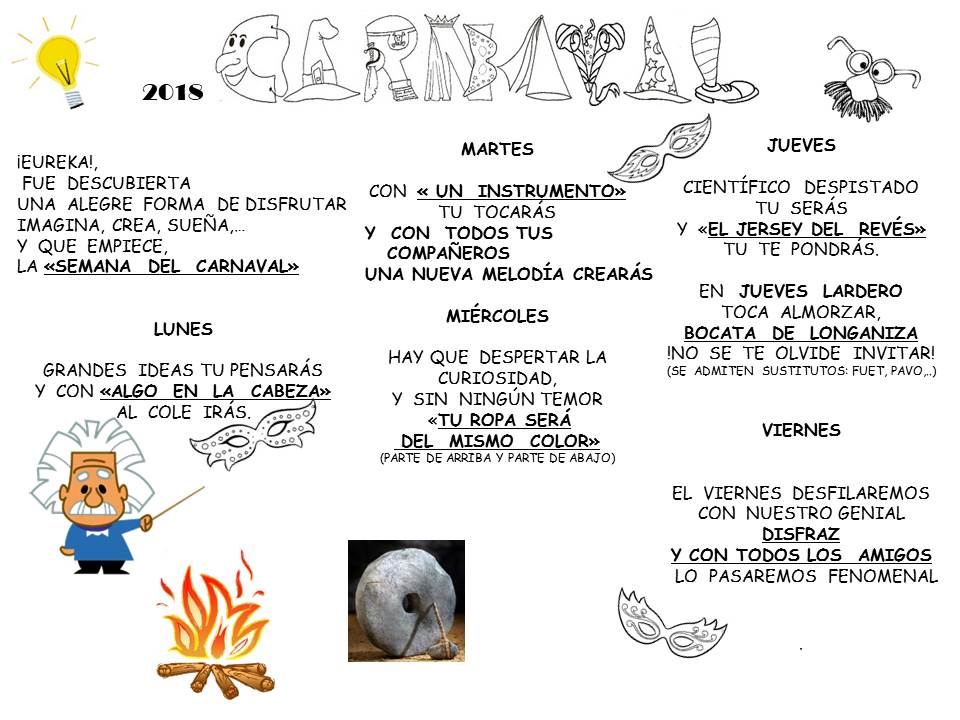 2018 CARNAVAL
¡EUREKA!,
FUE DESCUBIERTA
UNA ALEGRE FORMA DE DISFRUTAR
IMAGINA, CREA, SUEÑA,...
Y QUE EMPIECE,
LA «SEMANA DEL CARNAVAL»
LUNES
GRANDES IDEAS TU PENSARÁS
Y CON «ALGO EN LA CABEZA»
AL COLE IRÁS.
MARTES
CON « UN INSTRUMENTO»
TU TOCARÁS
Y CON TODOS TUS
COMPAÑEROS
UNA NUEVA MELODÍA CREARÁS
MIÉRCOLES
HAY QUE DESPERTAR LA
CURIOSIDAD,
Y SIN NINGÚN TEMOR
«TU ROPA SERÁ
DEL MISMO COLOR»
(PARTE DE ARRIBA Y PARTE DE ABAJO)
JUEVES
CIENTÍFICO DESPISTADO
TU SERÁS
Y «EL JERSEY DEL REVÉS»
TU TE PONDRÁS.
EN JUEVES LARDERO
TOCA ALMORZAR,
BOCATA DE LONGANIZA
!NO SE TE OLVIDE INVITAR!
(SE ADMITEN SUSTITUTOS: FUET, PAVO,..)
VIERNES
EL VIERNES DESFILAREMOS
CON NUESTRO GENIAL
DISFRAZ
Y CON TODOS LOS AMIGOS
LO PASAREMOS FENOMENAL
.